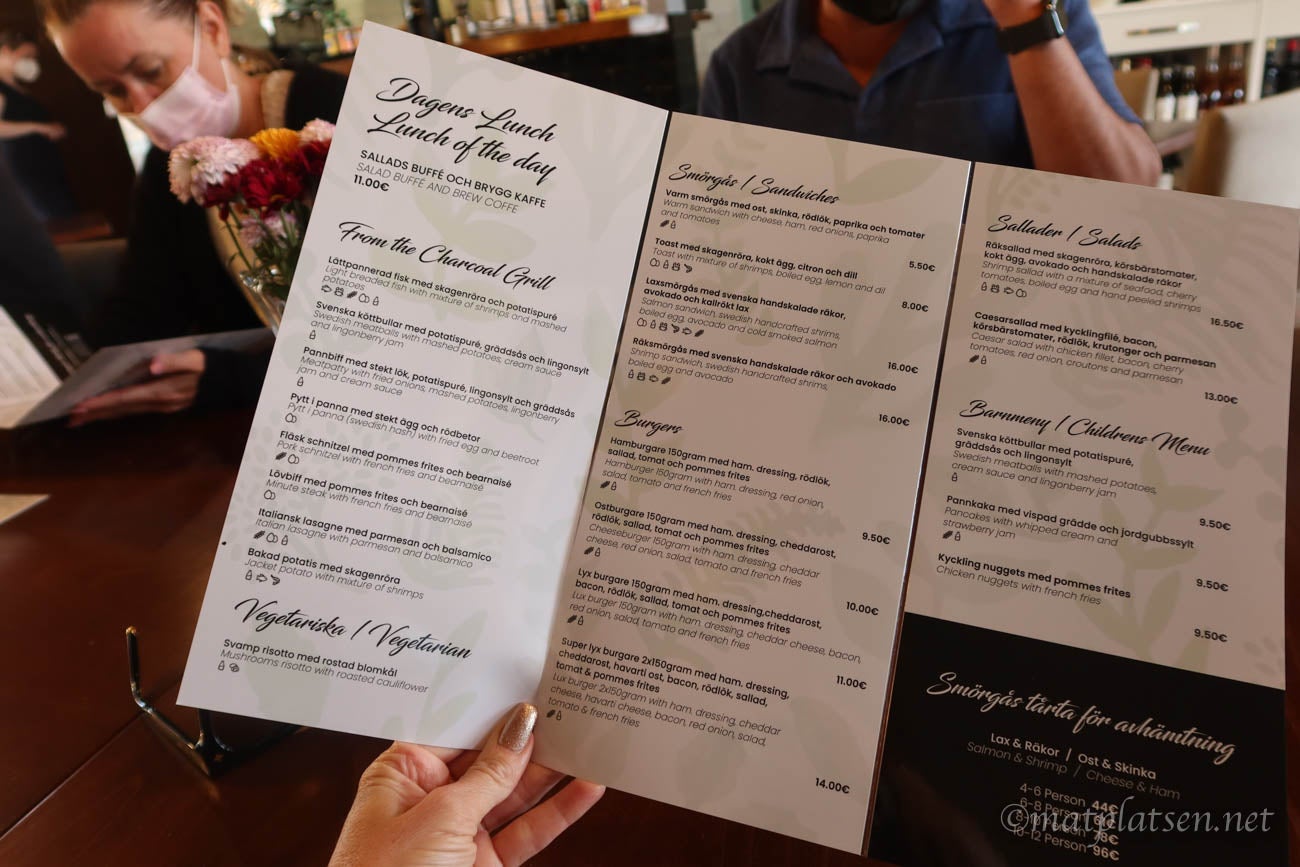 Dagens Lunch
Lunch of the day
SALLADS BUFFÉ OCH BRYGG KAFFE
SALAD BUFFE AND BREW COFFE
11.00€
From the Charcoal Grill
Lättpannerad fisk med skagenröra och potatispuré
Light breaded fish with mixture of shrimps and mashed
potatoes
Svenska köttbullar med potatispuré, gräddsås och lingonsylt
Swedish meatballs with mashed potatoes, cream sauce
and lingonberry jam
Pannbiff med stekt lök, potatispuré, lingonsylt och gräddsås
Meatpatty with fried onions, mashed potatoes, lingonberry
jam and cream sauce
Pytt i panna med stekt ägg och rödbetor
Pytt i panna (swedish hash) with fried egg and beetroot
Fläsk schnitzel med pommes frites och bearnaisé
Pork schnitzel with french fries and bearnaisé
Lövbiff med pommes frites och bearnaisé
Minute steak with french fries and bearnaisé
Italiansk lasagne med parmesan och balsamico
Italian lasagne with parmesan and balsamico
Bakad potatis med skagenröra
Jacket potato with mixture of shrimps
Vegetariska / Vegetarian
Svamp risotto med rostad blomkål
Mushrooms risotto with roasted cauliflower
Smörgås / Sandwiches
Varm smörgås med ost, skinka, rödlök, paprika och tomater
Warm sandwich with cheese, ham, red onions, paprika
and tomatoes
5.50€
Toast med skagenröra, kokt ägg, citron och dill
Toast with mixture of shrimps, boiled egg, lemon and dil
8.00€
Laxsmörgås med svenska handskalade räkor,
avokado och kallrökt lax
Salmon sandwich, swedish handcrafted shrims,
boiled egg, avocado and cold smoked salmon
16.00€
Räksmörgås med svenska handskalade räkor och avokado
Shrimp sandwich, swedish handcrafted shrims,
boiled egg and avocado
16.00€
Burgers
Hamburgare 150gram med ham. dressing, rödlök,
sallad, tomat och pommes frites
Hamburger 150gram with ham. dressing, red onion,
salad, tomato and french fries
9.50€
Ostburgare 150gram med ham. dressing, cheddarost,
rödlök, sallad, tomat och pommes frites
Cheeseburger 150gram with ham. dressing, cheddar
cheese, red onion, salad, tomato and french fries
10.00€
Lyx burgare 150gram med ham. dressing,cheddarost,
bacon, rödlök, sallad, tomat och pommes frites
Lux burger 150gram with ham. dressing, cheddar cheese, bacon,
red onion, salad, tomato and french fries
11.00€
Super lyx burgare 2x150gram med ham. dressing,
cheddarost, havarti ost, bacon, rödlök, sallad,
tomat & pommes frites
Lux burger 2x150gram with ham. dressing, cheddar
cheese, havarti cheese, bacon, red onion, salad,
tomato & french fries
14.00€
Sallader / Salads
Räksallad med skagenröra, körsbärstomater,
kokt ägg, avokado och handskalade räkor
Shrimp sallad with a mixture of seafood, cherry
tomatoes, boiled egg and hand peeled shrimps
16.50€
Caesarsallad med kycklingfilé, bacon,
körsbärstomater, rödlök, krutonger och parmesan
Caesar salad with chicken fillet, bacon, cherry
tomatoes, red onion, croutons and parmesan
13.00€
Barnmeny / Childrens Menu
Svenska köttbullar med potatispuré,
gräddsås och lingonsylt
Swedish meatballs with mashed potatoes,
cream sauce and lingonberry jam
9.50€
Pannkaka med vispad grädde och jordgubbssylt
Pancakes with whipped cream and
strawberry jam
9.50€
Kyckling nuggets med pommes frites
Chicken nuggets with french fries
9.50€
Smörgås tårta för avhämtning
Lax & Räkor | Ost & Skinka
Salmon & Shrimp / Cheese & Ham
4-6 Person 44€
6-8 Person
Person 78€
10-12 Person 96€
©matplatsen.net